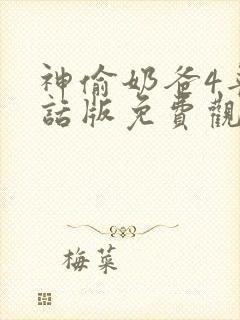 神偷奶爸4
話版免費觀
梅菜